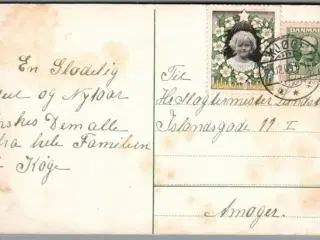 En Glædelig
Jul og Nytaar
ønskes Dem alle
fra hele Familien
i Køge
Til
Hr Slagtermester
Islandsgade 11 I
Amager.
KJØGE
DANMARK